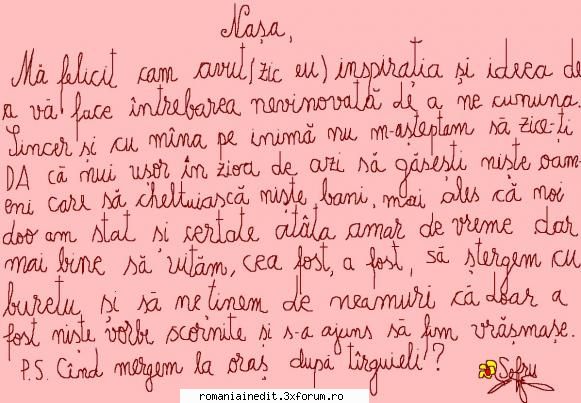 Nașa,
Mă felicit cam avut (zic eu) inspirația și ideea de
a vă face întrebarea nevinovată de a ne cununa.
Sincer și cu mîna pe inimă nu m-așteptam să zice-ți
DA că nui usor în zioa de azi să găsești niște oam-
eni care să cheltuiască niște bani, mai ales că noi
doo am stat si certate atâta amar de vreme dar
mai bine să uităm, cea fost, a fost, să ștergem cu
buretu și să ne tinem de neamuri că doar a
fost niste vorbe scornite și s-a ajuns să fim vrăsmașe.
P.S. Cînd mergem la oraș după tîrguieli?
Sofru
romaniainedit.3xforum.ro